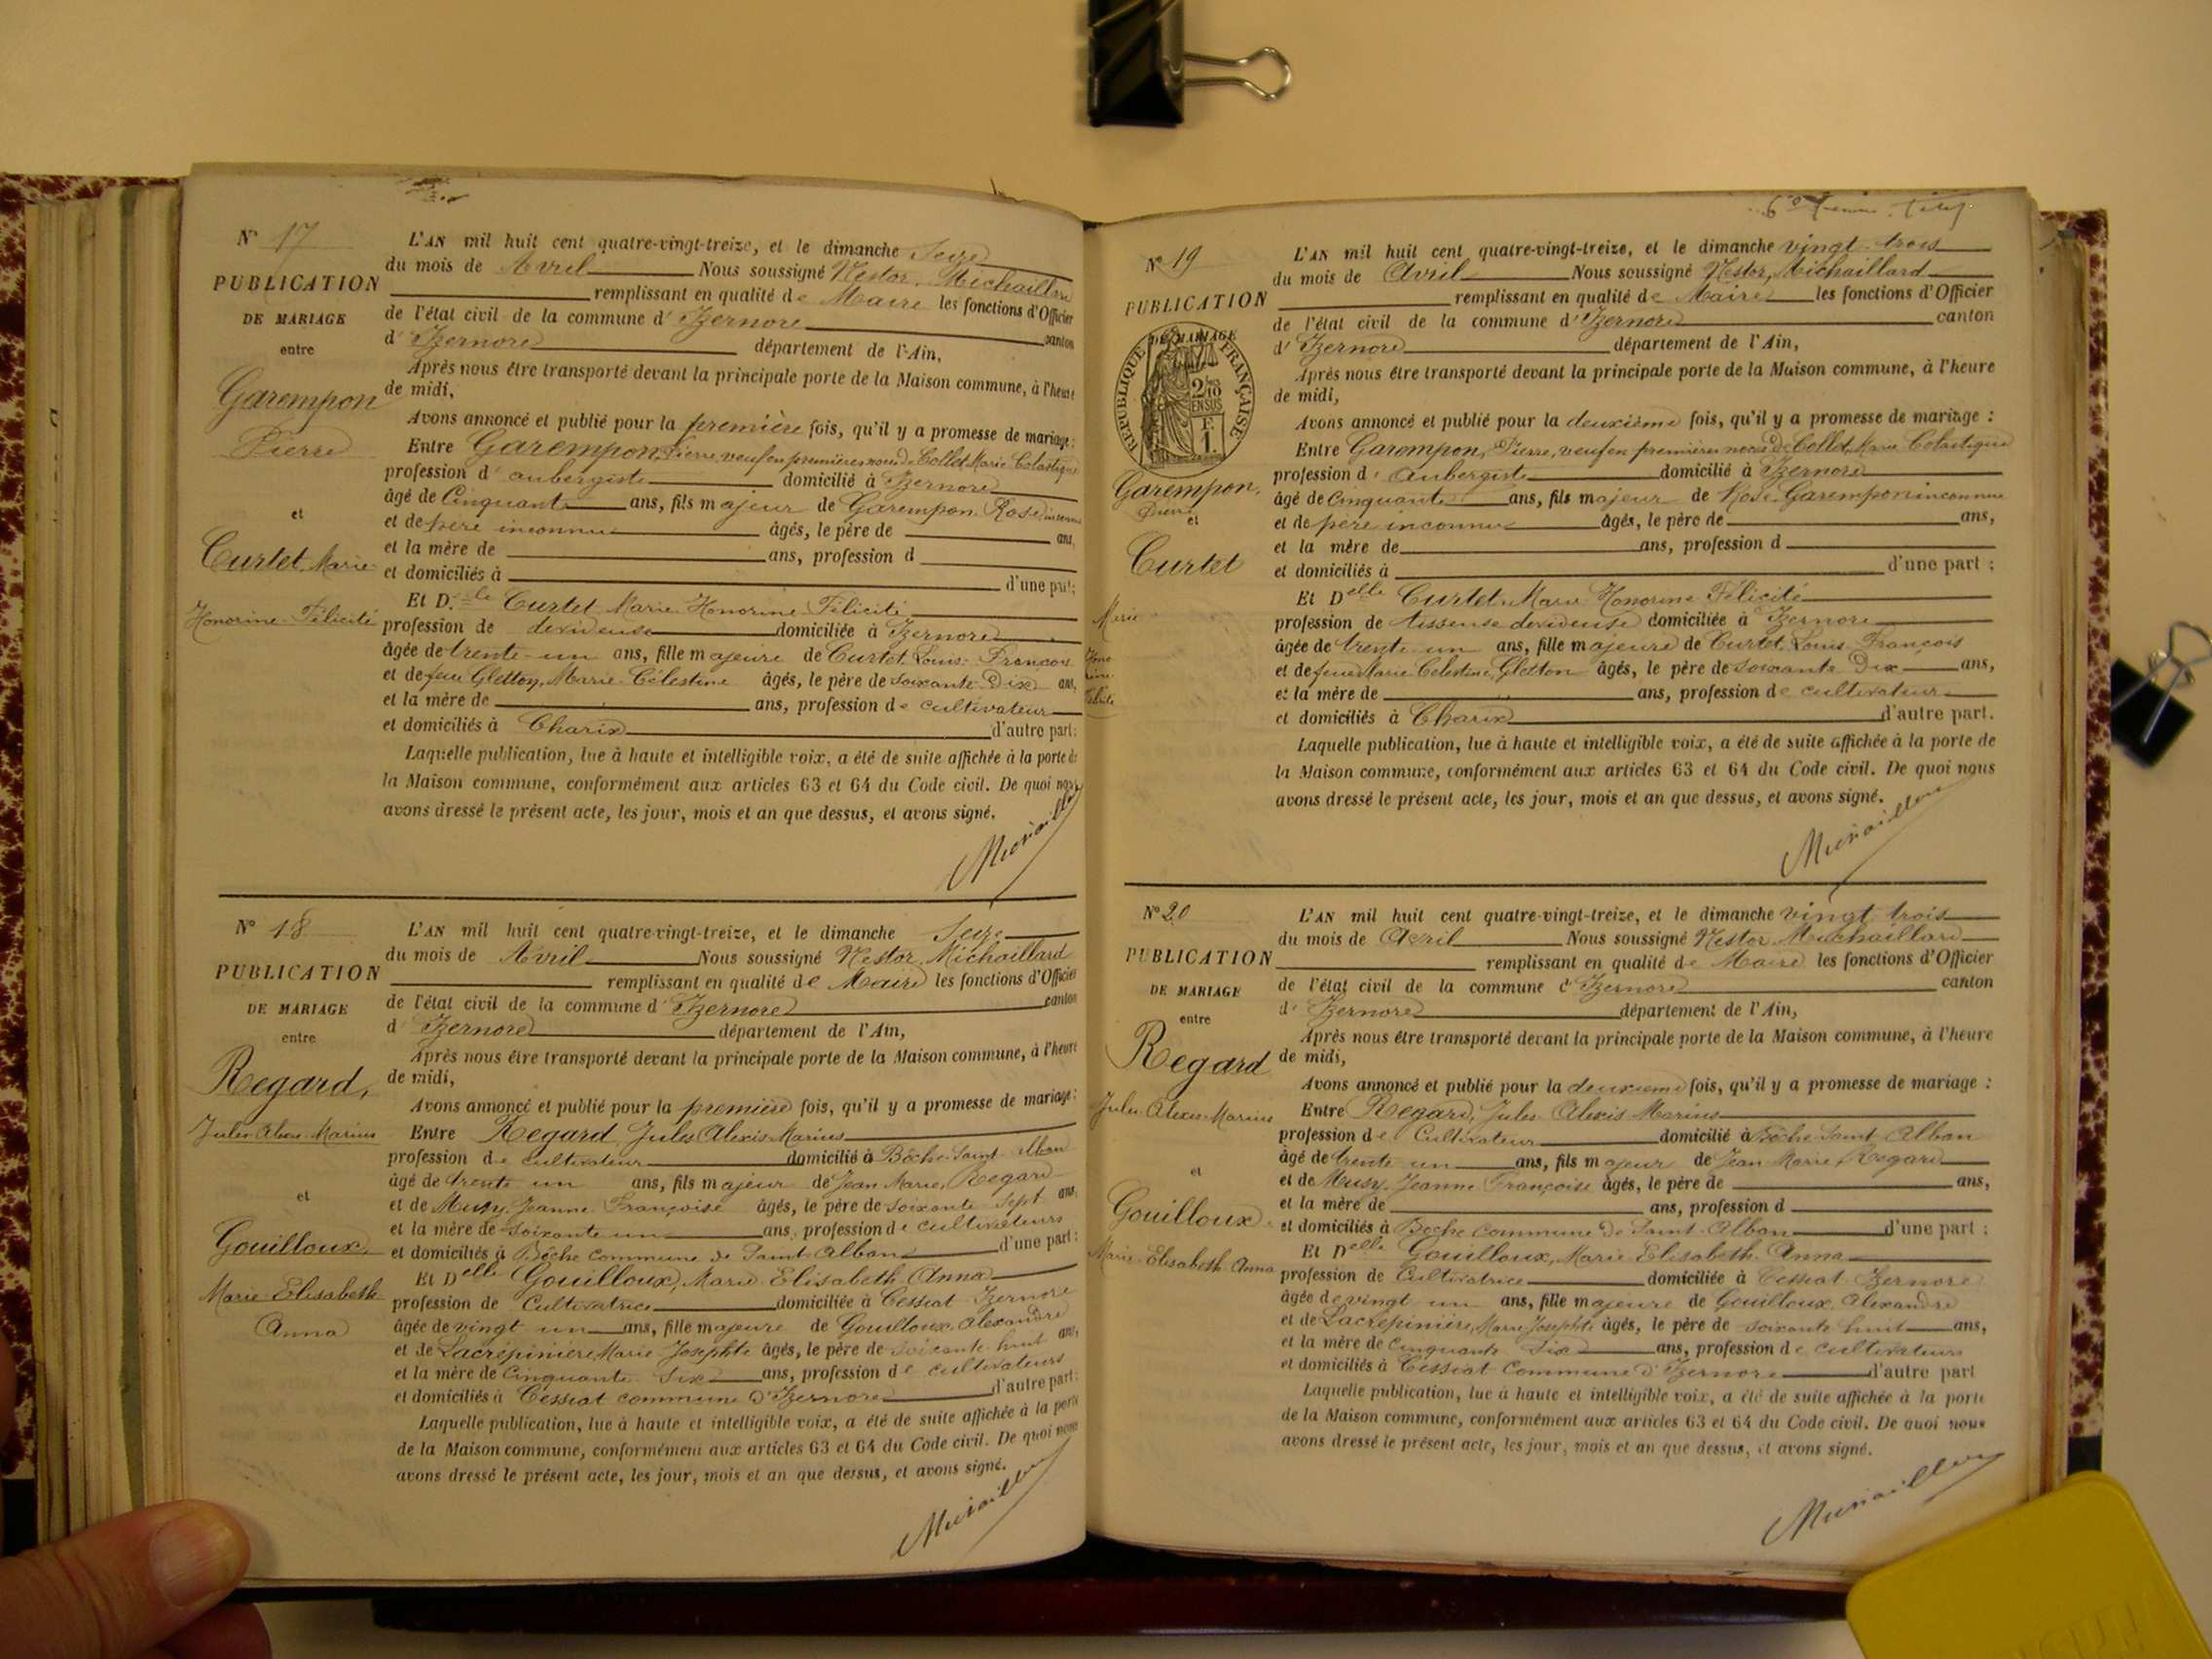 N° 17
PUBLICATION
DE MARIAGE
entre
Garempon
Pierre
et
Curtet Marie
Honorine Félicité
L'AN mil huit cent quatre-vingt-treize, et le dimanche Seize
du mois de Avril Nous soussigné Nestor, Michaillard
remplissant en qualité de Maire les fonctions d'Officier
de l'état civil de la commune d'Izernore canton
d'Izernore département de l'Ain,
Après nous être transporté devant la principale porte de la Maison commune, à l'heure
de midi,
Avons annoncé et publié pour la première fois, qu'il y a promesse de mariage :
Entre Garempon, Pierre, veuf en premières noces de Collet Marie Colastique
profession d'aubergiste domicilié à Izernore
âgé de Cinquante ans, fils majeur de Garempon Rose
et de père inconnu âgés, le père de ans,
et la mère de ans, profession d
et domiciliés à d'une part;
Et D.lle Curtet Marie Honorine Félicité
profession de devideuse domiciliée à Izernore
âgée de trente-un ans, fille majeure de Curtet, Louis François
et de feue Gletton, Marie Célestine âgés, le père de soixante Dix ans,
et la mère de ans, profession de cultivateur
et domiciliés à Charix d'autre part:
Laquelle publication, lue à haute et intelligible voix, a été de suite affichée à la porte de
la Maison commune, conformément aux articles 63 et 64 du Code civil. De quoi nous
avons dressé le présent acte, les jour, mois et an que dessus, et avons signé.
N° 18
PUBLICATION
DE MARIAGE
entre
Regard,
Jules Alexis Marius
et
Gouilloux
Marie Elisabeth
Anna
L'AN mil huit cent quatre-vingt-treize, et le dimanche Seize
du mois de Avril Nous soussigné Nestor Michaillard
remplissant en qualité de Maire les fonctions d'Officier
de l'état civil de la commune d'Izernore canton
d'Izernore département de l'Ain,
Après nous être transporté devant la principale porte de la Maison commune, à l'heure
de midi,
Avons annoncé et publié pour la première fois, qu'il y a promesse de mariage :
Entre Regard Jules Alexis Marius
profession de cultivateur domicilié à Bôche Saint Alban
âgé de trente un ans, fils majeur de Jean Marie, Regard
et de Musy, Jeanne Françoise âgés, le père de soixante sept ans,
et la mère de soixante un ans, profession de cultivateurs
et domiciliés à Bôche commune de Saint-Alban d'une part:
Et Delle Gouilloux, Marie Elisabeth Anna
profession de Cultivatrice domiciliée à Cessiat Izernore
âgée de vingt un ans, fille majeure de Gouilloux Alexandre
et de Lacrépinière Marie Josephte âgés, le père de soixante huit ans,
et la mère de Cinquante Six ans, profession de cultivateurs
et domiciliés à Cessiat commune d'Izernore d'autre part:
Laquelle publication, lue à haute et intelligible voix, a été de suite affichée à la porte
de la Maison commune, conformément aux articles 63 et 64 du Code civil. De quoi nous
avons dressé le présent acte, les jour, mois et an que dessus, et avons signé.
N° 19
PUBLICATION
DE MARIAGE
RÉPUBLIQUE FRANÇAISE
2/10 EN SUS
F.
1.
Garempon,
Pierre
et
Curtet
Marie
L'AN mil huit cent quatre-vingt-treize, et le dimanche vingt trois
du mois de Avril Nous soussigné Nestor, Michaillard
remplissant en qualité de Maire les fonctions d'Officier
de l'état civil de la commune d'Izernore canton
d'Izernore département de l'Ain,
Après nous être transporté devant la principale porte de la Maison commune, à l'heure
de midi,
Avons annoncé et publié pour la deuxième fois, qu'il y a promesse de mariage :
Entre Garempon, Pierre, veuf en premières noces de Collet, Marie Colastique
profession d'Aubergiste domicilié à Izernore
âgé de Cinquante ans, fils majeur de Rose Garempon inconnue
et de père inconnu âgés, le père de ans,
et la mère de ans, profession d
et domiciliés à d'une part ;
Et Delle Curtet Marie Honorine Félicité
profession de tisseuse devideuse domiciliée à Izernore
âgée de trente un ans, fille majeure de Curtet Louis François
et de feue Marie Célestine, Gletton âgés, le père de soixante Dix ans,
et la mère de ans, profession de cultivateur
et domiciliés à Charix d'autre part.
Laquelle publication, lue à haute et intelligible voix, a été de suite affichée à la porte de
la Maison commune, conformément aux articles 63 et 64 du Code civil. De quoi nous
avons dressé le présent acte, les jour, mois et an que dessus, et avons signé.
N° 20
PUBLICATION
DE MARIAGE
entre
Regard
Jules Alexis Marius
et
Gouilloux
Marie Elisabeth Anna
L'AN mil huit cent quatre-vingt-treize, et le dimanche vingt trois
du mois de Avril Nous soussigné Nestor Michaillard
remplissant en qualité de Maire les fonctions d'Officier
de l'état civil de la commune d'Izernore canton
d'Izernore département de l'Ain,
Après nous être transporté devant la principale porte de la Maison commune, à l'heure
de midi,
Avons annoncé et publié pour la deuxième fois, qu'il y a promesse de mariage :
Entre Regard, Jules Alexis Marius
profession de Cultivateur domicilié à Bôche Saint Alban
âgé de trente un ans, fils majeur de Jean Marie, Regard
et de Musy, Jeanne Françoise âgés, le père de ans,
et la mère de ans, profession d
et domiciliés à Boche commune de Saint-Alban d'une part ;
Et Delle Gouilloux, Marie Elisabeth Anna
profession de Cultivatrice domiciliée à Cessiat Izernore
âgée de vingt un ans, fille majeure de Gouilloux Alexandre
et de Lacrépinière, Marie Josephte âgés, le père de soixante huit ans,
et la mère de Cinquante Six ans, profession de cultivateurs
et domiciliés à Cessiat Commune d'Izernore d'autre part
Laquelle publication, lue à haute et intelligible voix, a été de suite affichée à la porte
de la Maison commune, conformément aux articles 63 et 64 du Code civil. De quoi nous
avons dressé le présent acte, les jour, mois et an que dessus, et avons signé.